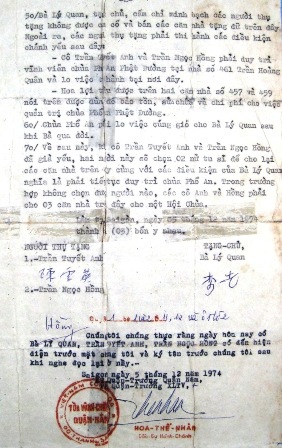 5o/Bà Lý Quan, tặng chủ, cần chỉ minh bạch các người thụ
tặng không được cầm cố và bán các căn nhà tặng dữ trên đây
Ngoài ra, các người thụ tặng phải thi hành các điều kiện
chánh yếu sau đây:
- Cô Trần Tuyết Anh và Trần Ngọc Hồng phải duy trì
viên của Phổ An Phật Đường tại nhà số 461 Trần Hoàng
Quân và lo việc chánh tại nơi đây.
- Hoa lợi thu được trên hai căn nhà số 457 và 459
nói trên được dùng để bảo tồn, sửa chữa và chi phí cần việc
quản trị chùa Phổ An Phật Đường.
6o/ Chùa Phổ An phải lo việc cúng giỗ cho Bà Lý Quan sau
khi Bà qua đời.
7o/ Về sau này, vì cô Trần Tuyết Anh và Trần Ngọc Hồng
đã già yếu, hai người này sẽ chọn 02 nữ tu sĩ để cho lại
các căn nhà trên cùng với các điều kiện của Bà Lý Quan
nghĩa là phải tiếp tục duy trì chùa Phổ An. Trong trường
hợp không chọn được người nào, các cô Anh và Hồng phải
cho 03 căn nhà trên đây cho một Hội Chùa.
Làm tại Saigon, ngày 05 tháng 12 năm 1974
thành (05) bổn y nhau.
NGƯỜI THỤ TẶNG TẶNG-CHỦ,
1.-Trần Tuyết Anh Bà Lý Quan
陳雪英
2.-Trần Ngọc Hồng
Hồng
Chúng tôi chứng thực rằng ngày hôm nay có
BÀ LÝ QUAN, TRẦN TUYẾT ANH, TRẦN NGỌC HỒNG có đến hiện
diện trước mặt chúng tôi và ký tên trước chúng tôi sau
khi nghe đọc lại tờ này.
Saigon, ngày 5 tháng 12 năm 1974
Quận-Trưởng Quận Năm,
TÒA HÀNH CHÁNH
QUẬN NĂM
HOA-THẾ-NHÂN